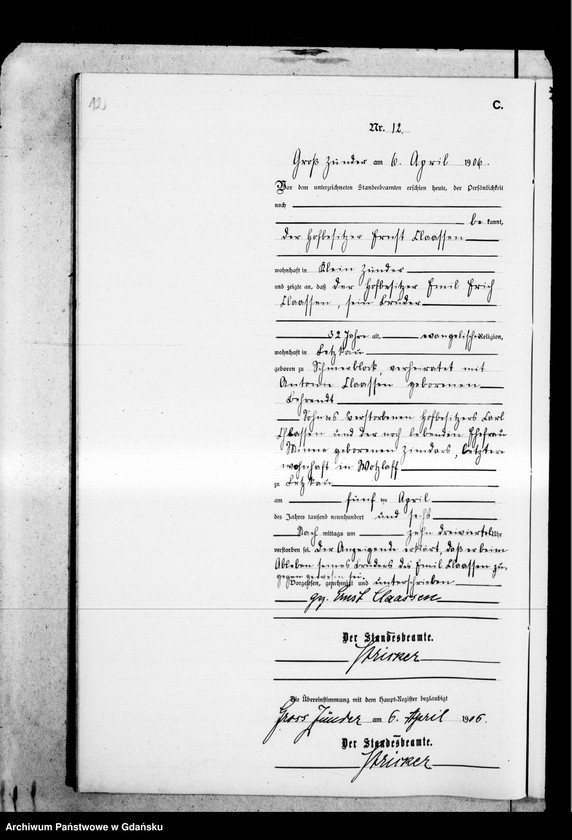 12.
C.
Nr. 12.
Groß Zünder am 6. April 1906.
Vor dem unterzeichneten Standesbeamten erschien heute, der Persönlichkeit
nach
be kannt,
der Hofbesitzer Ernst Claassen
wohnhaft in Klein Zünder
und zeigte an, daß der Hofbesitzer Emil Erich
Claassen, sein Bruder
32 Jahre alt, evangelischer Religion,
wohnhaft in Letzkau
geboren zu Schmerblock, verheiratet mit
Antonie Claassen geborenen
Behrendt
Sohn des verstorbenen Hofbesitzers Carl
Claassen und der noch lebenden Ehefrau
Minna geborenen, letztere
wohnhaft in Wotzlaff
zu Letzkau
am fünf ten April
des Jahres tausend neunhundert und sechs
Nach mittags um zehn dreiviertel Uhr
verstorben sei. Der Anzeigende erklärt, daß er beim
Ableben seines Bruders des Emil Claassen zu-
gegen gewesen sei.
Vorgelesen, genehmigt und unterschrieben
gez. Ernst Claassen
Der Standesbeamte.
Stricker
Die Übereinstimmung mit dem Haupt-Register beglaubigt
Gross Zünder am 6. April 1906.
Der Standesbeamte.
Stricker
Archiwum Państwowe w Gdańsku